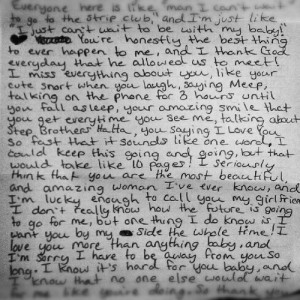 Everyone here is like, man I can't wait
to go to the strip club, and I'm just like
"I just can't wait to be with my baby!"
♥ You're honestly the best thing
to ever happen to me, and I thank God
everyday that he allowed us to meet!
I miss everything about you, like your
cute snort when you laugh, saying Meep,
talking on the phone for 8 hours until
you fall asleep, your amazing smile that
you get everytime you see me, talking about
Step Brothers HaHa, you saying I Love You
So fast that it sounds like one word, I
could keep this going and going, but that
would take like 10 pages! I seriously
think that you are the most beautiful
and amazing woman I've ever know, and
I'm lucky enough to call you my Girlfrien
I don't really know how the future is going
to go for me, but one thing I do know is I
want you by my side the whole time! I
love you more than anything baby, and
I'm Sorry I have to be away from you so
long. I know it's hard for you baby, and
I know that no one else would wait